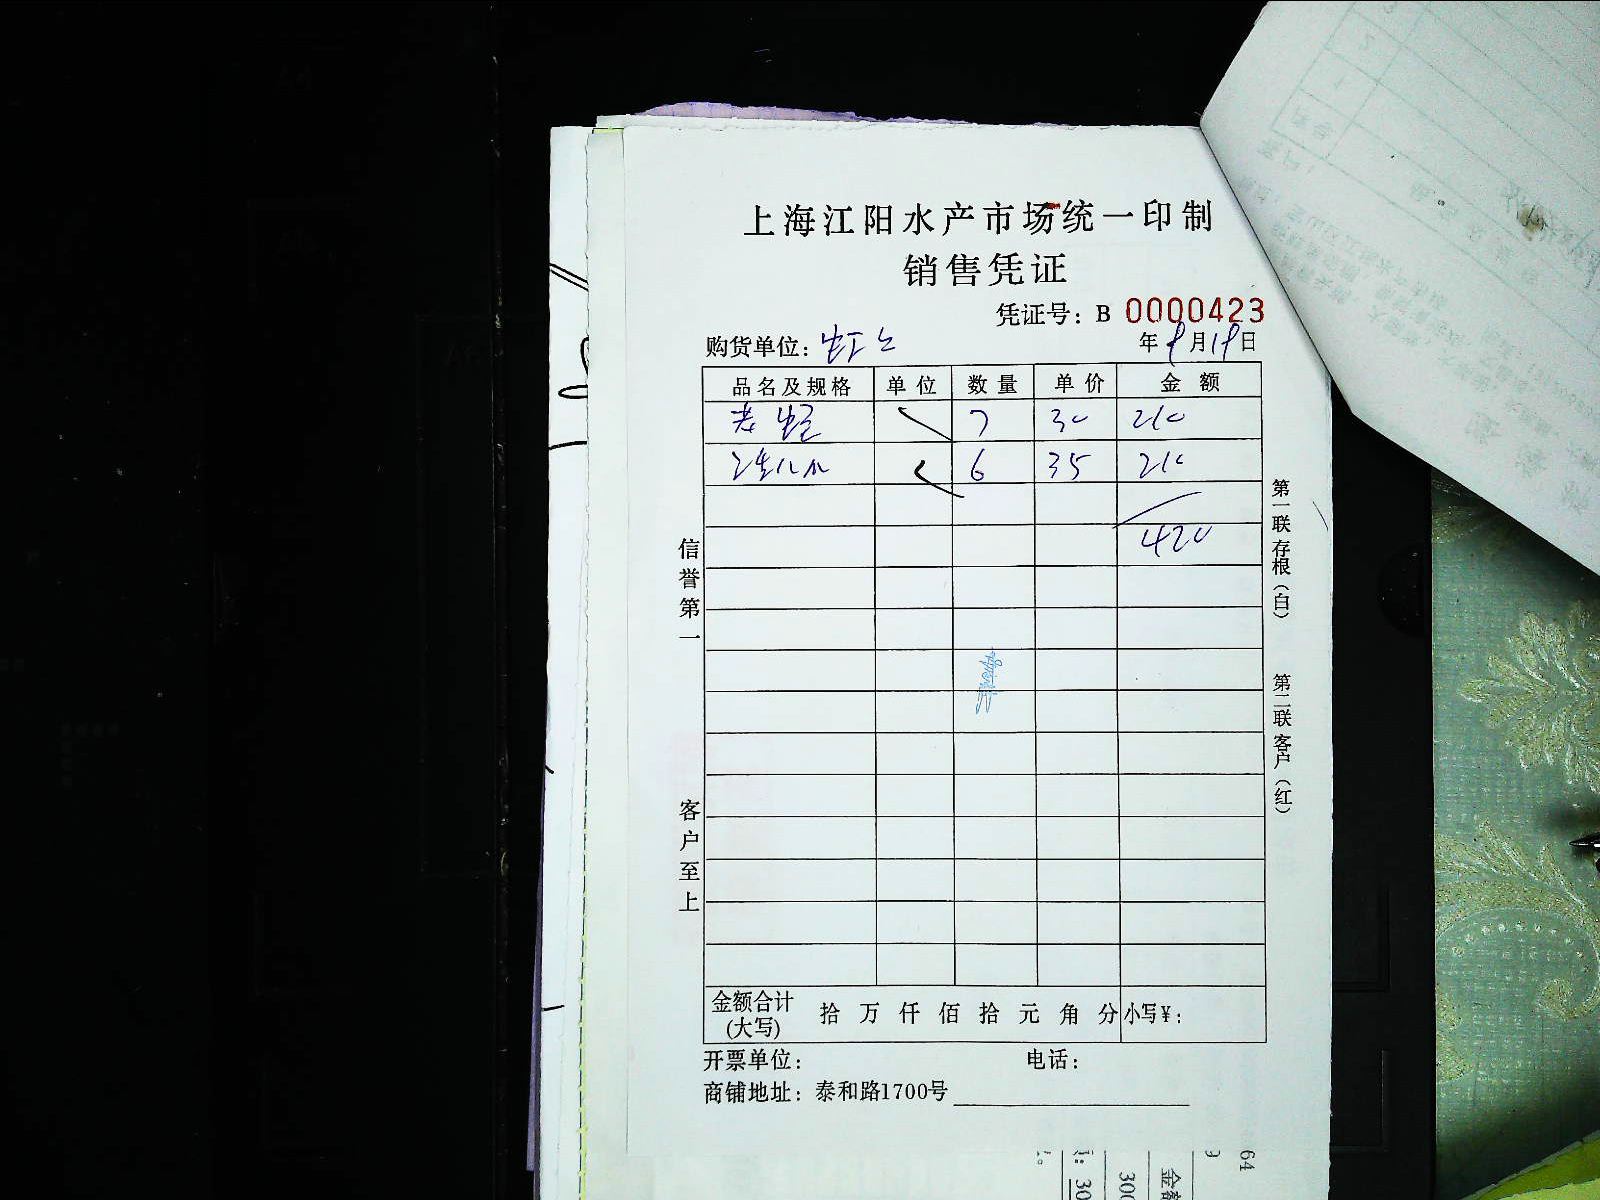 上海江阳水产市场统一印制
销售凭证
凭证号：B 0000423
购货单位：虹上 年9月19日
品名及规格 单位 数量 单价 金额
老 7 30 210
6 35 210
420
信誉第一
客户至上
第一联存根（白）
第二联客户（红）
金额合计(大写) 拾 万 仟 佰 拾 元 角 分 小写¥：
开票单位： 电话：
商铺地址：泰和路1700号